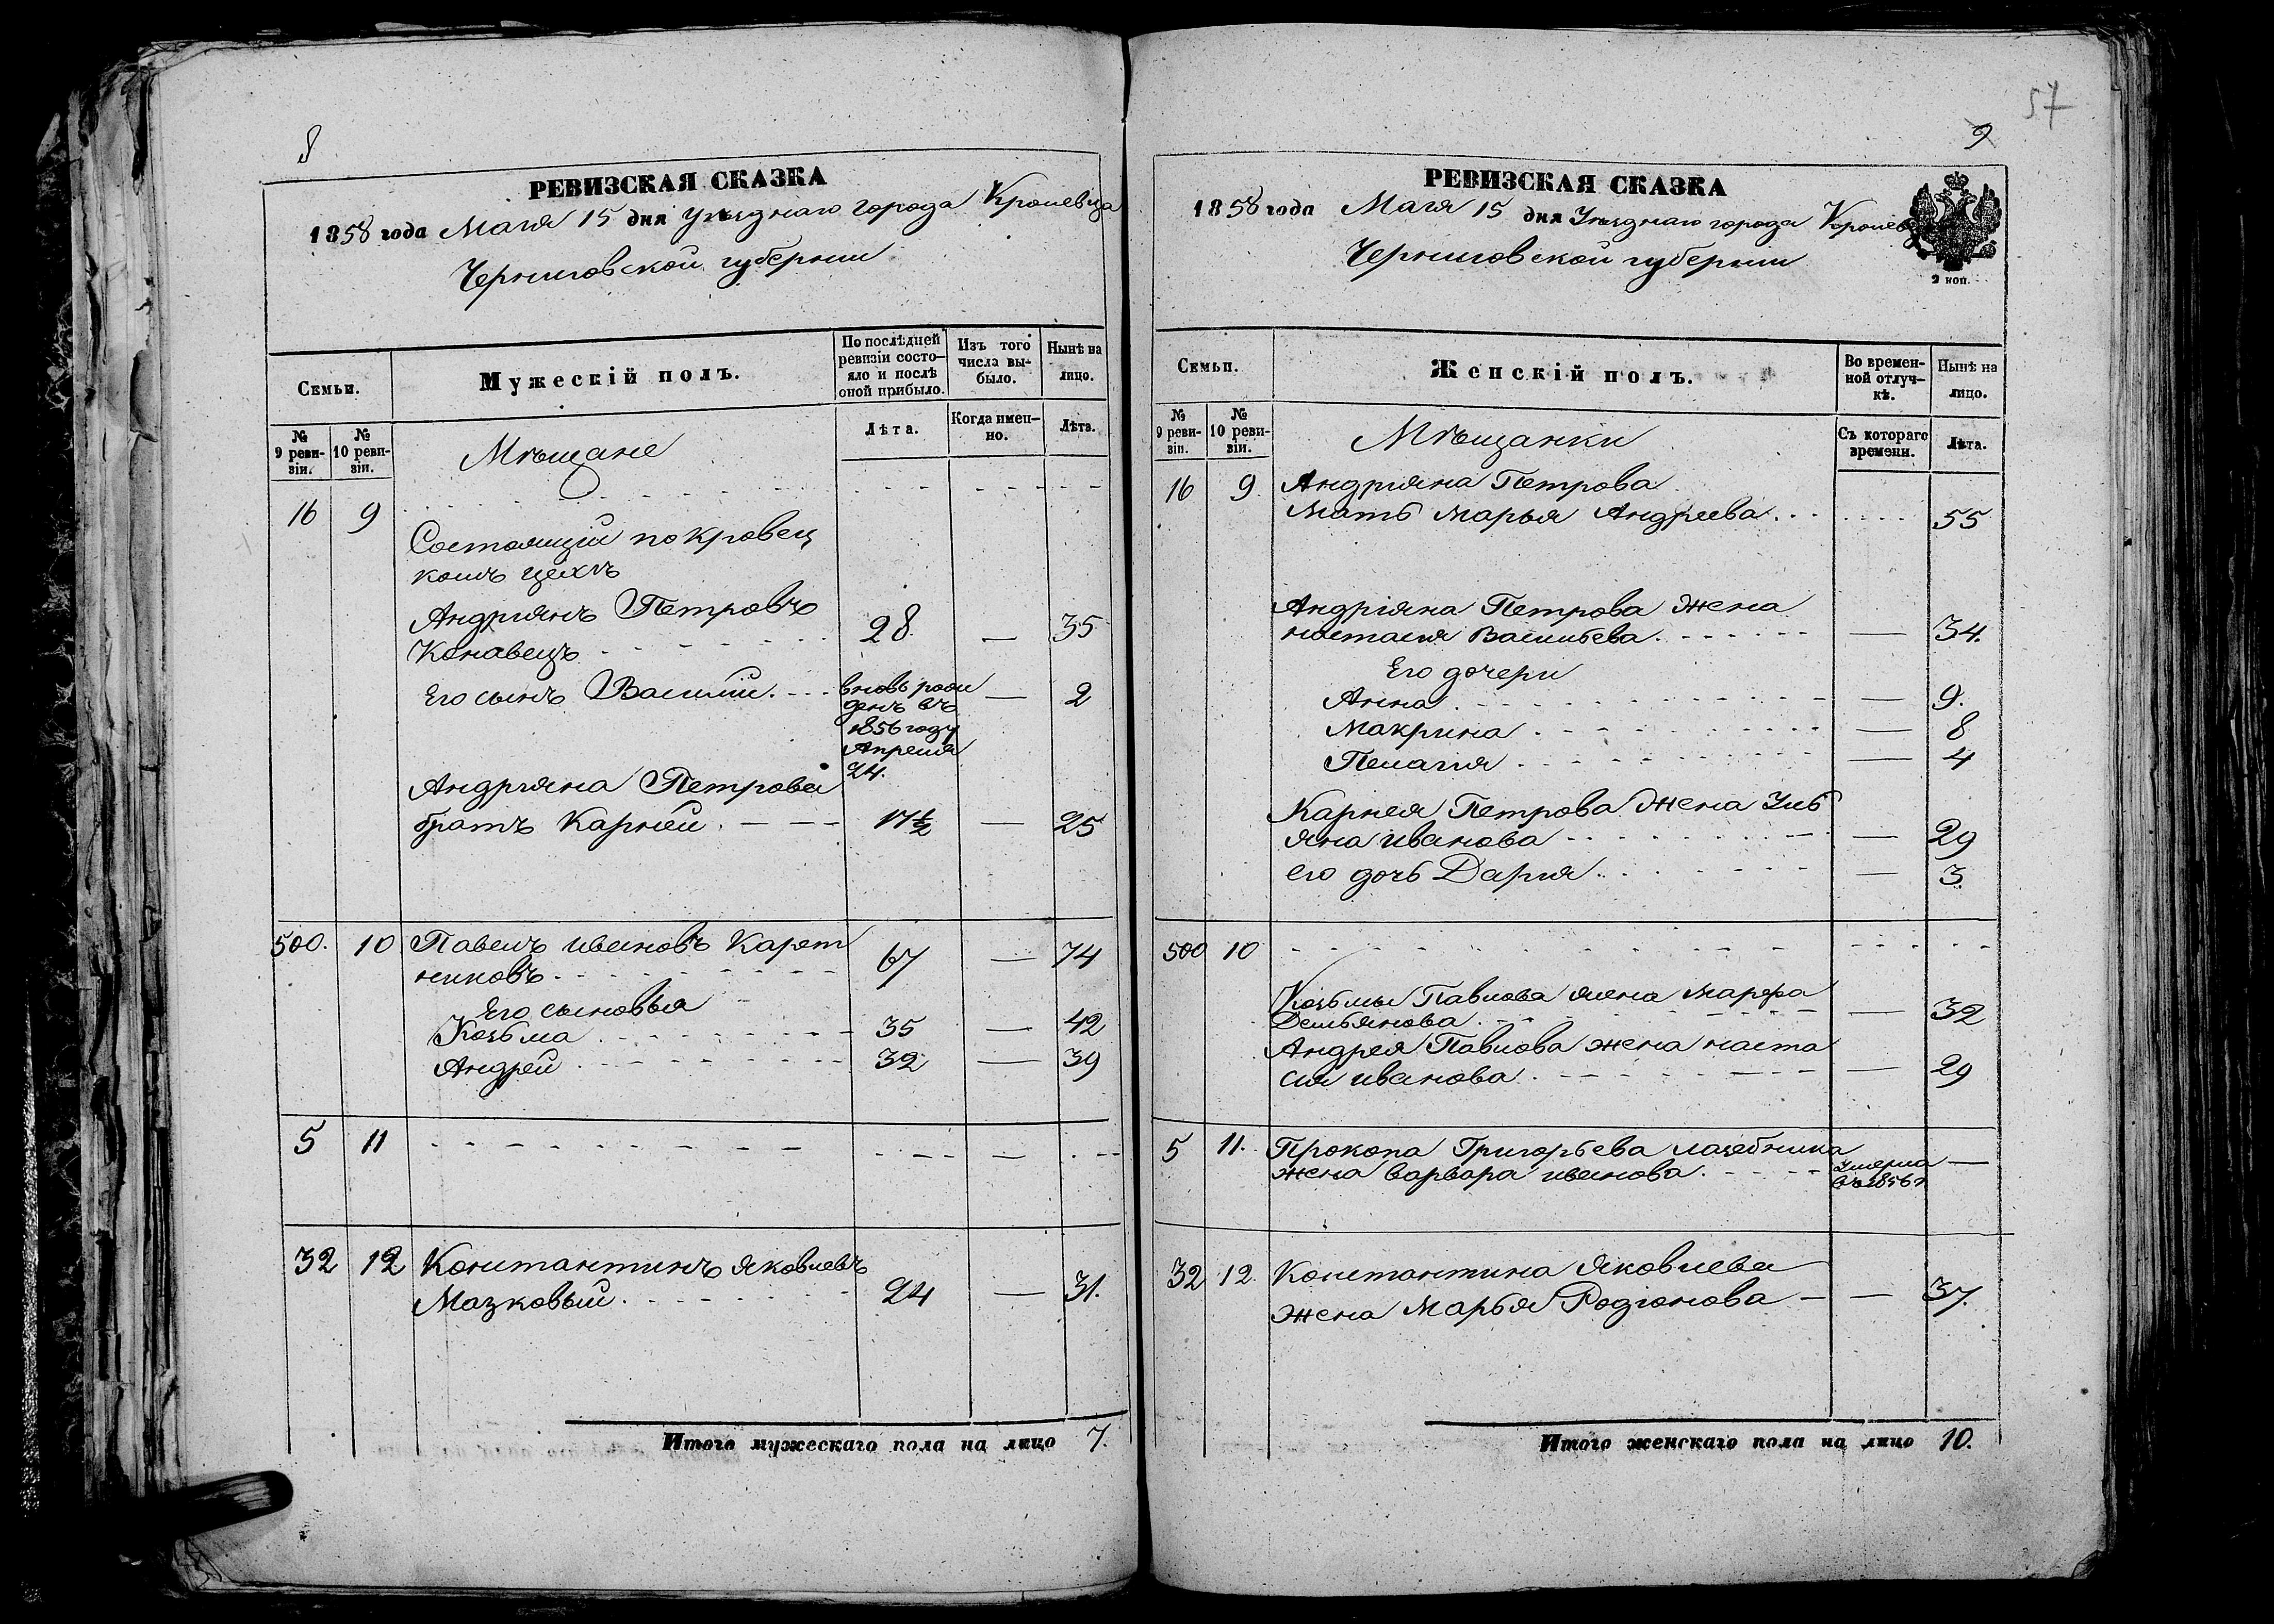 57
8
РЕВИЗСКАЯ СКАЗКА
1858 года Маія 15 дня Уѣзднаго города Кролевца
Черниговской губерніи
Семьи.
Мужескій полъ.
По послѣдней ревизіи состояло и послѣ оной прибыло.
Изъ того числа выбыло.
Нынѣ на лицо.
№ 9 ревизіи.
№ 10 ревизіи.
Мѣщане
Лѣта.
Когда именно.
Лѣта.
16 9
Состоящій по кровец
комъ цехѣ
Андріянъ Петровъ
Конавецъ 28 — 35
Его сынъ Василій. вновь рожденъ въ 1856 году Апреля 24. — 2
Андріяна Петрова
братъ Карней. 17 1/2 — 25
500. 10 Павелъ ивановъ Карет
никовъ. 67 — 74
Его сыновья
Козьма 35 — 42
Андрей 32 — 39
5 11
32 12 Константинъ яковлевъ
Мазковый. 24 — 31.
Итого мужескаго пола на лицо 7.
9
РЕВИЗСКАЯ СКАЗКА
1858 года Маія 15 дня Уѣзднаго города
Черниговской губерніи
2 коп.
Семьи.
Женскій полъ.
Во временной отлучкѣ.
Нынѣ на лицо.
№ 9 ревизіи.
№ 10 ревизіи.
Мѣщанки
Съ котораго времени.
Лѣта.
16 9 Андріяна Петрова
Мать Марья Андреева. 55
Андріяна Петрова жена
настасія Васильева. — 34.
Его дочери
Анна. — 9.
Макрина. — 8
Пелагія. — 4
Карнея Петрова жена Уль
яна иванова — 29
его дочь Дарія. — 3
500 10
Козьмы Павлова жена Марфа
Демьянова. — 32
Андрея Павлова жена наста
сия иванова. — 29
5 11. Прокопа Григорьева лазебника
жена варвара иванова. Умерла въ 1856 г —
32 12. Константина Яковлева
жена Марья Родіонова — — 37.
Итого женскаго пола на лицо 10.